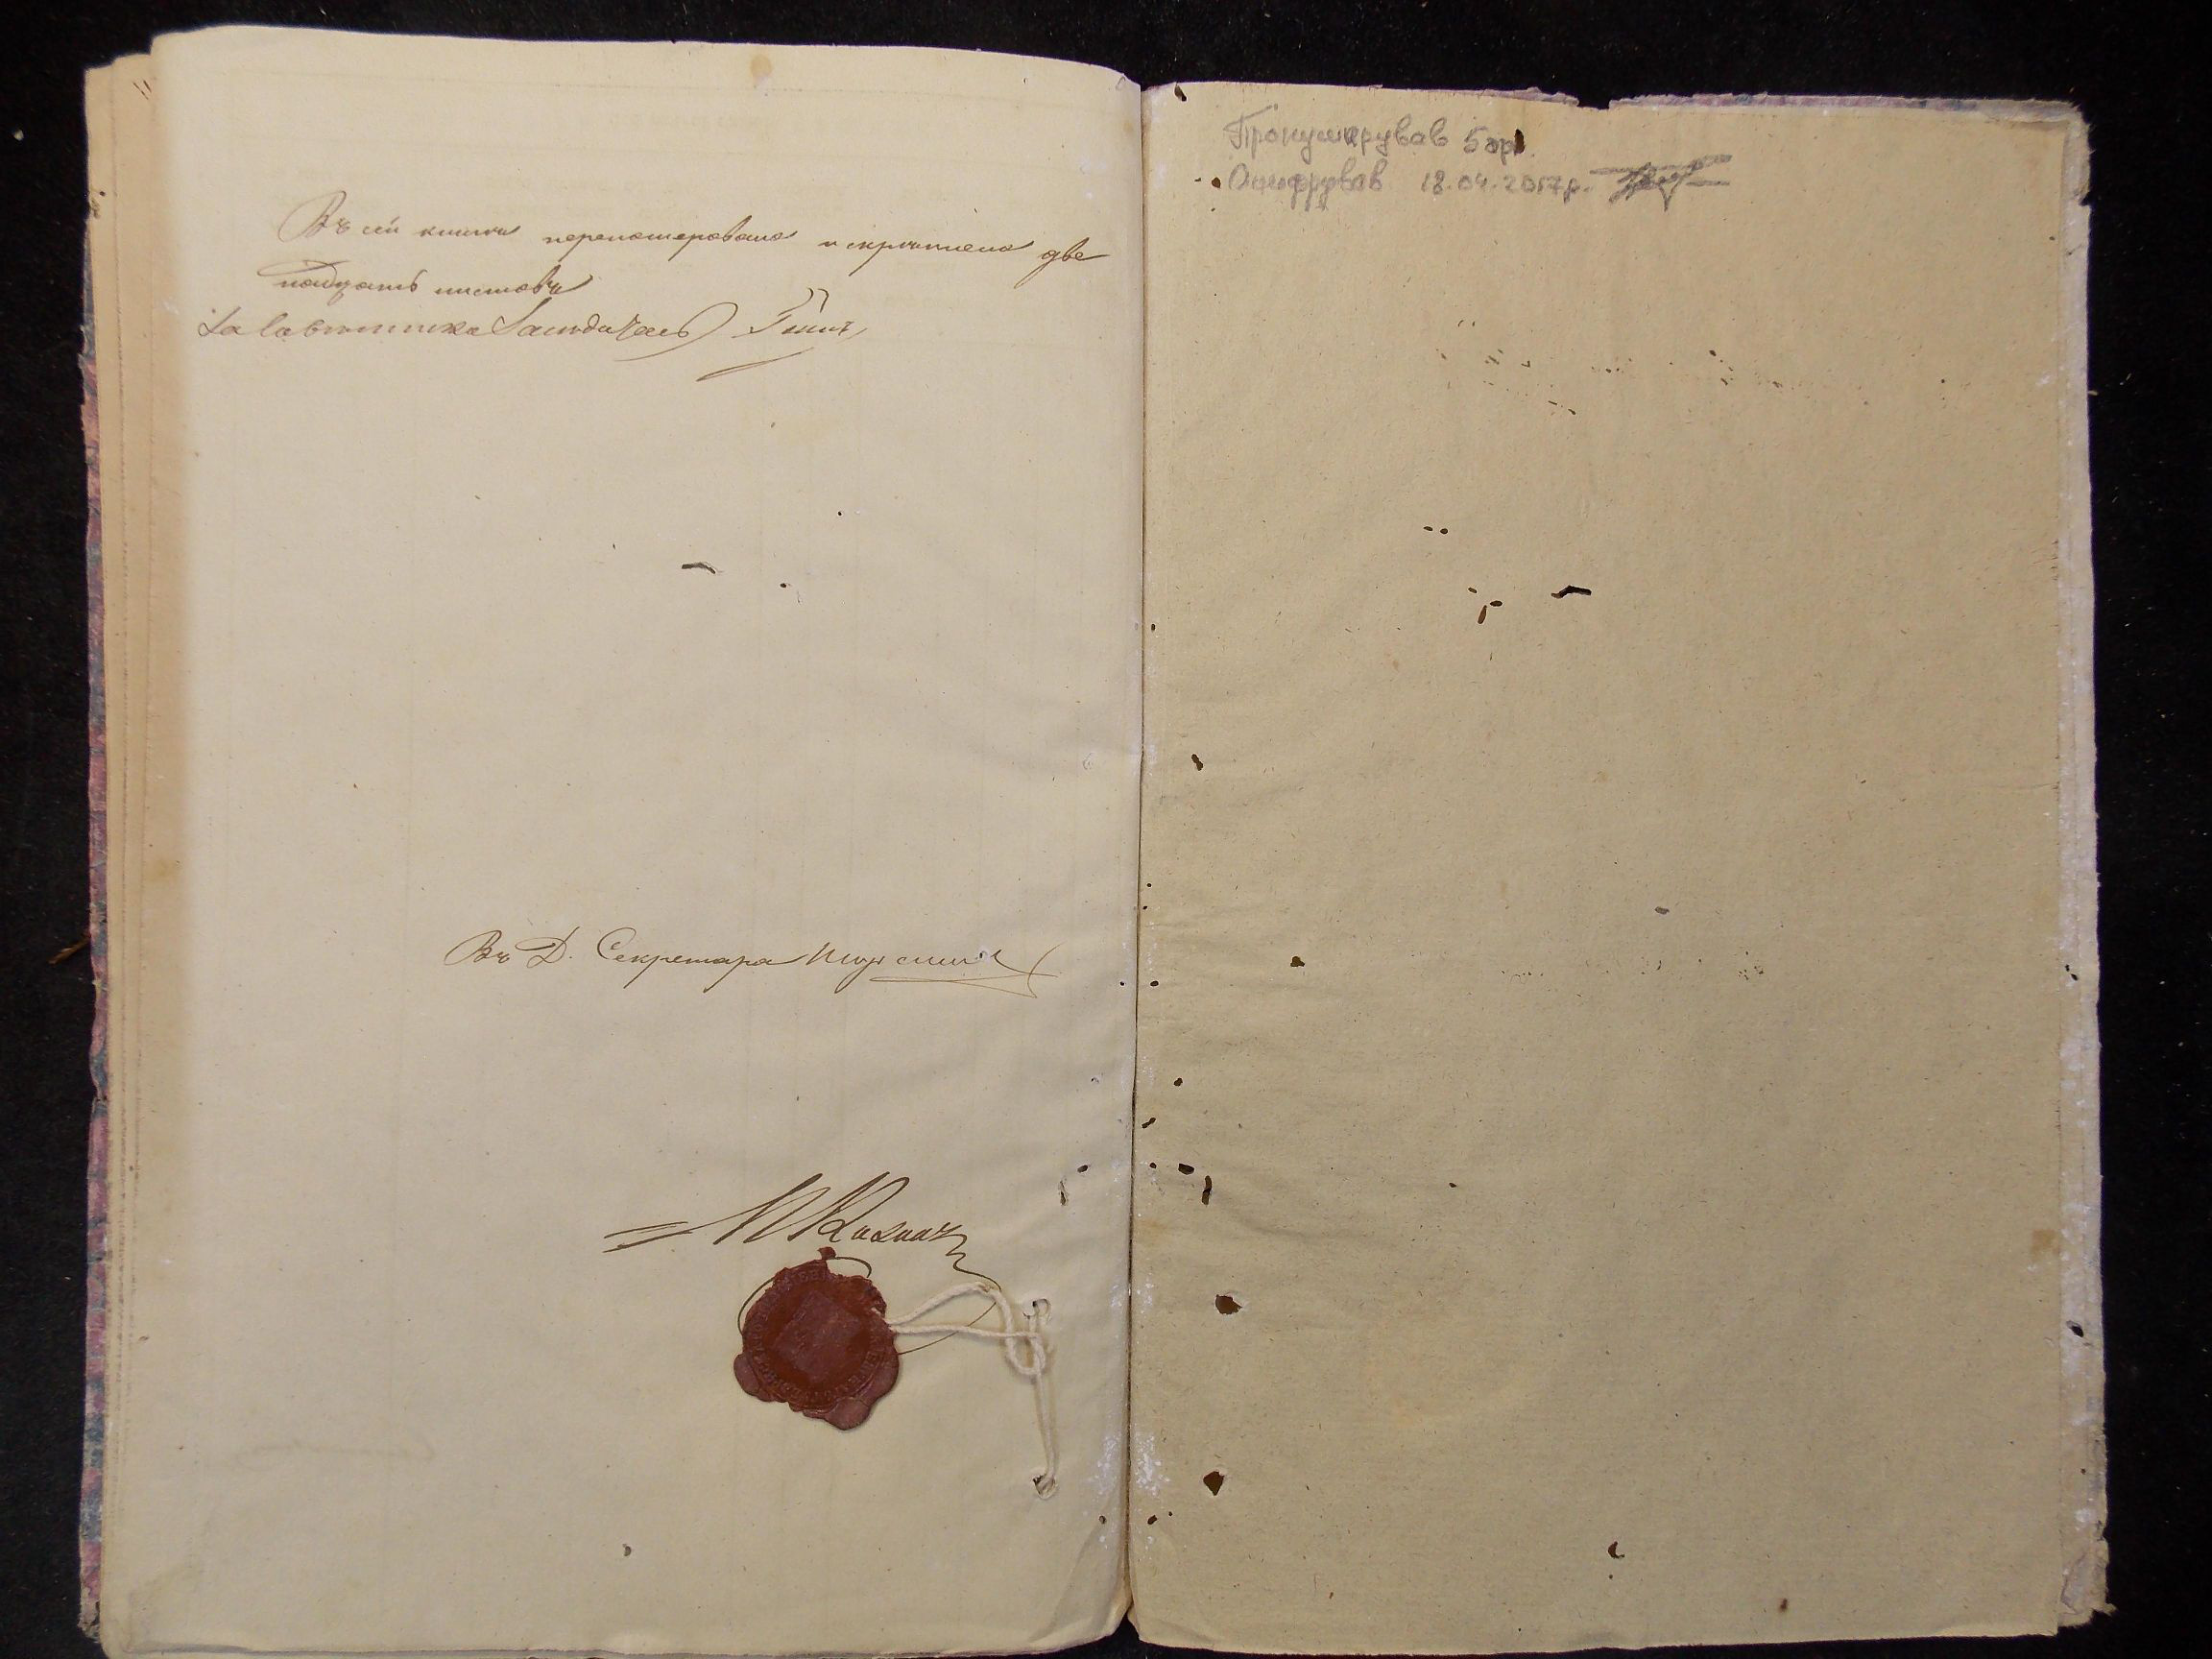 Въ сей книги переномерована и скрѣплена две
надцать листовъ
За Совѣтника Заседатель
Въ Д. Секретаря
Пронумерував 5 арк.
Оцифрував 18.04.2017р.